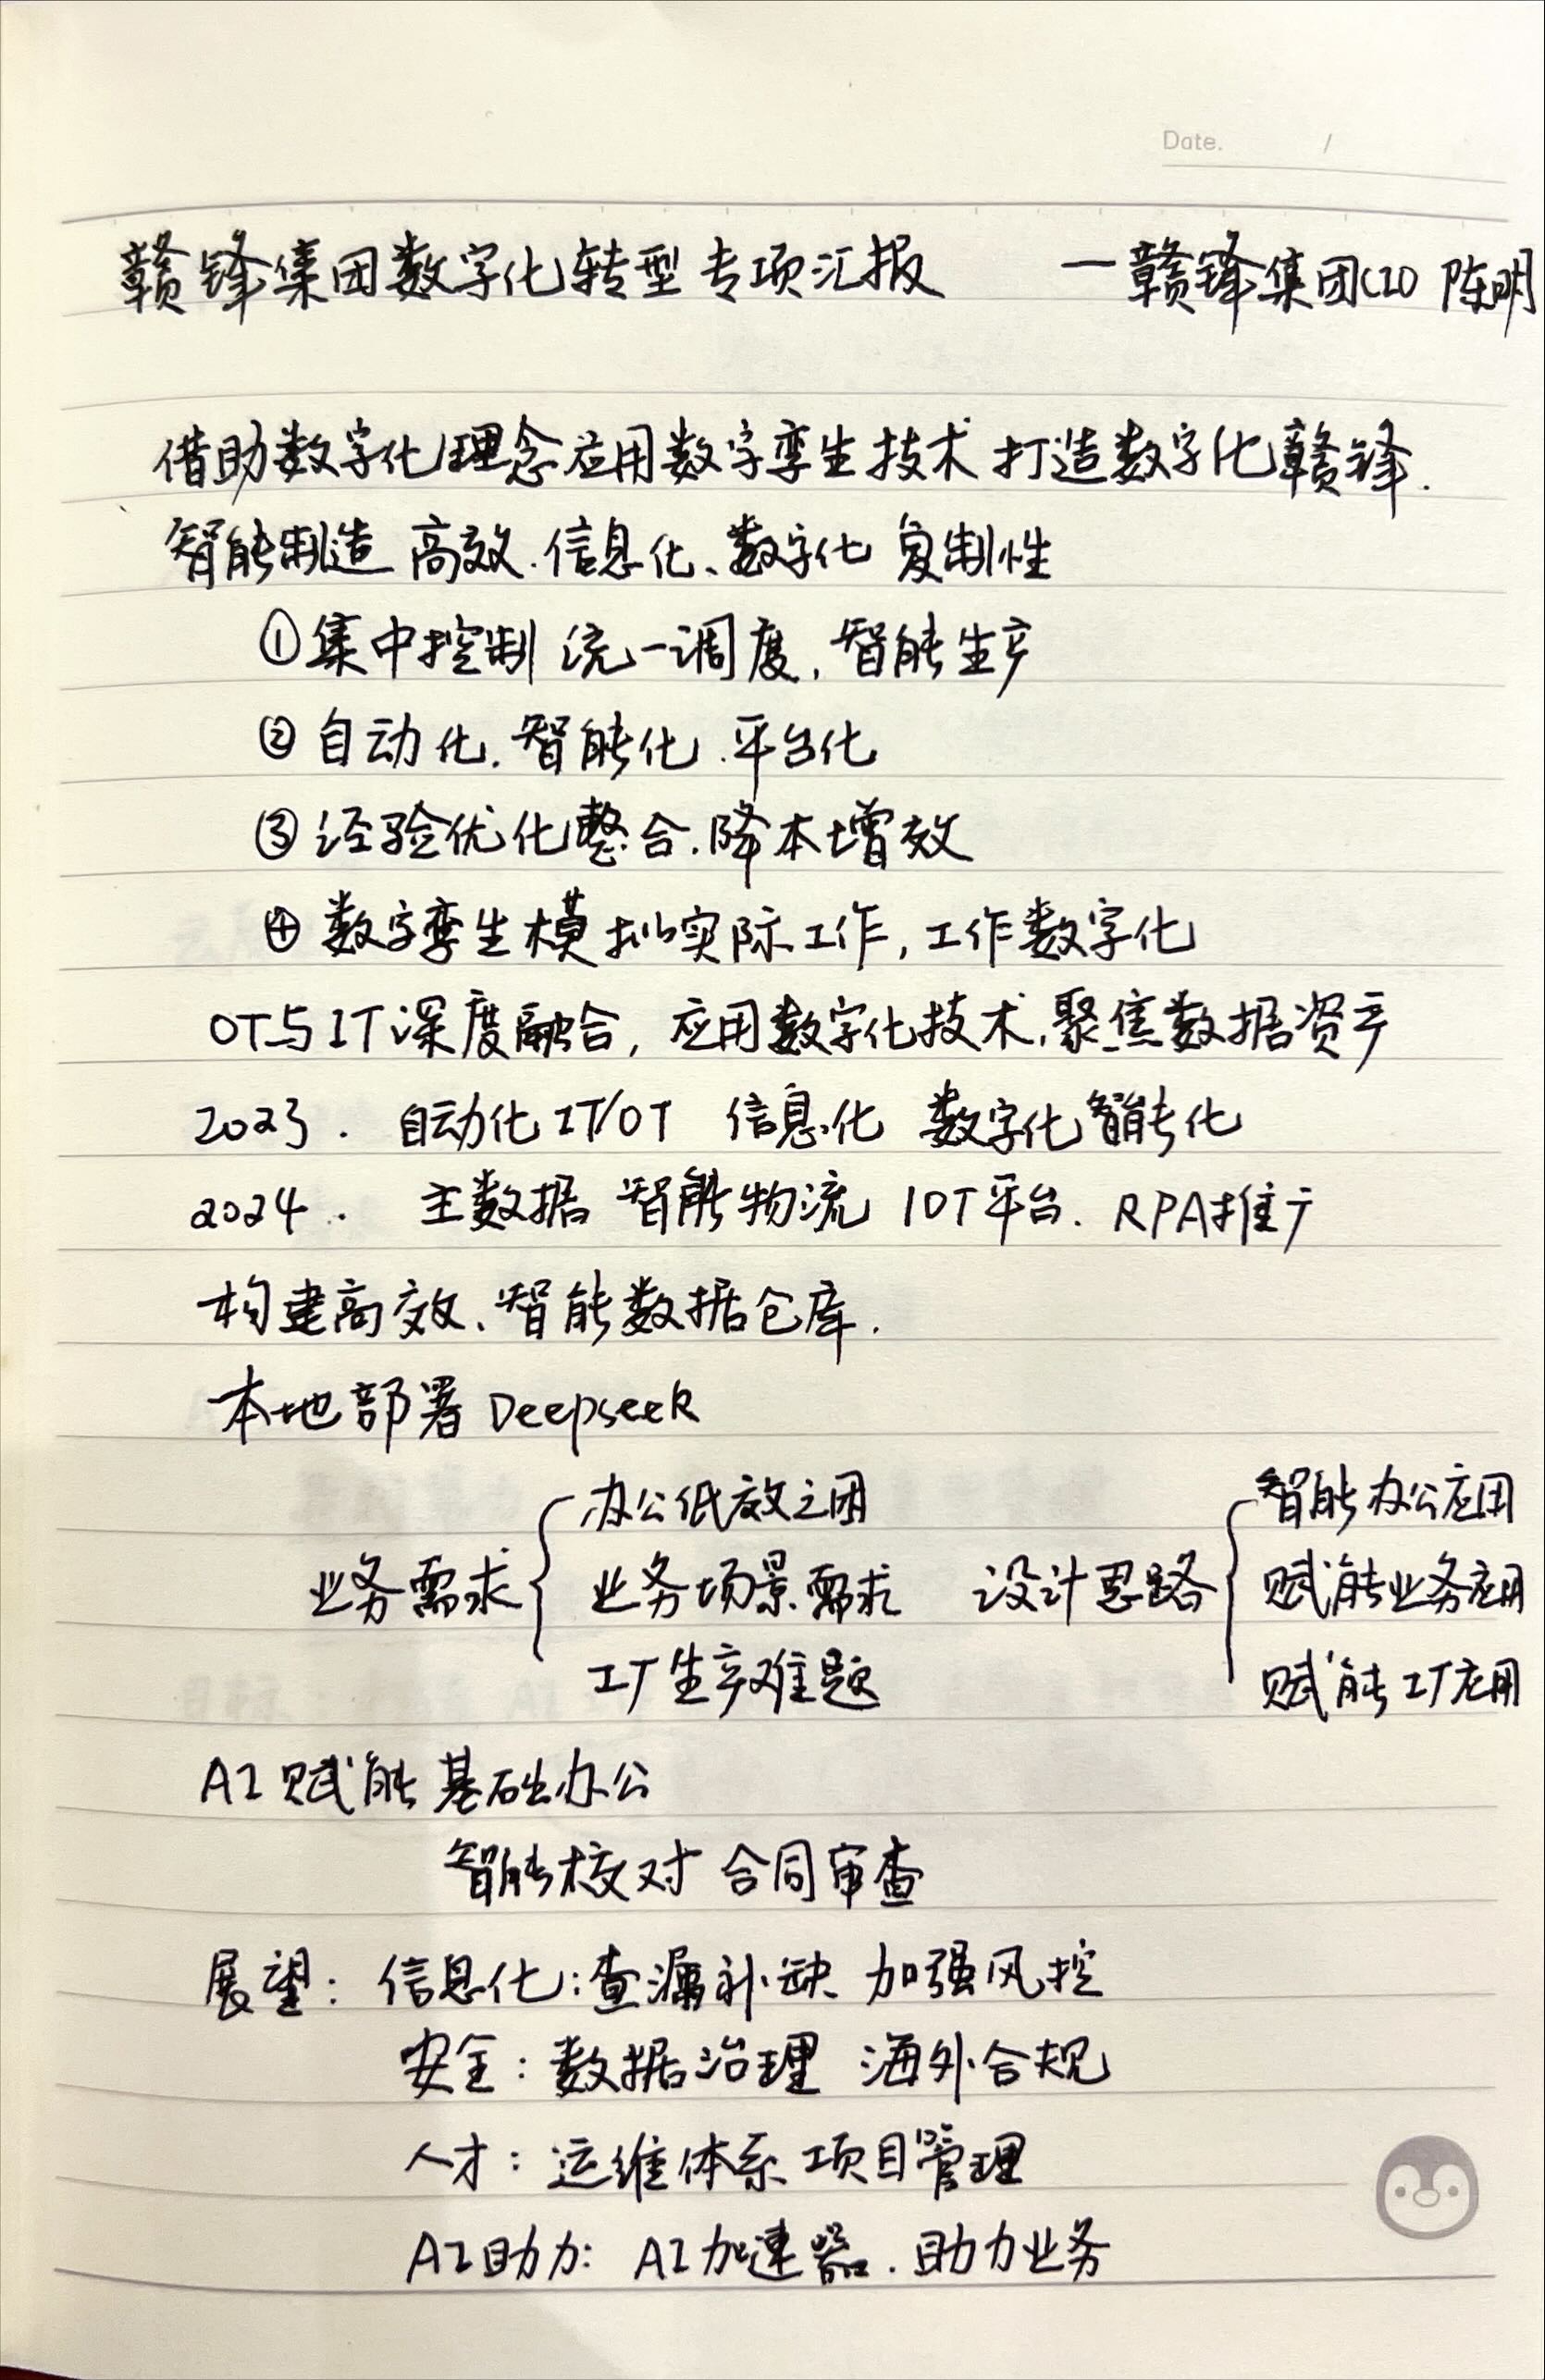 Date. /
赣锋集团数字化转型专项汇报 一赣锋集团CIO 陈明
借助数字化理念应用数字孪生技术 打造数字化赣锋.
智能制造 高效.信息化、数字化 复制性
①集中控制 统一调度,智能生产
②自动化.智能化.平台化
③经验优化整合.降本增效
④数字孪生模拟实际工作,工作数字化
OT与IT深度融合,应用数字化技术,聚焦数据资产
2023. 自动化IT/OT 信息化 数字化智能化
2024. 主数据 智能物流 IOT平台. RPA推广
构建高效、智能数据仓库.
本地部署Deepseek
办公低效之困 智能办公应用
业务需求 业务场景需求 设计思路 赋能业务应用
工厂生产难题 赋能工厂应用
AI赋能基础办公
智能校对 合同审查
展望:信息化:查漏补缺 加强风控
安全:数据治理 海外合规
人才:运维体系 项目管理
AI助力:AI加速器.助力业务